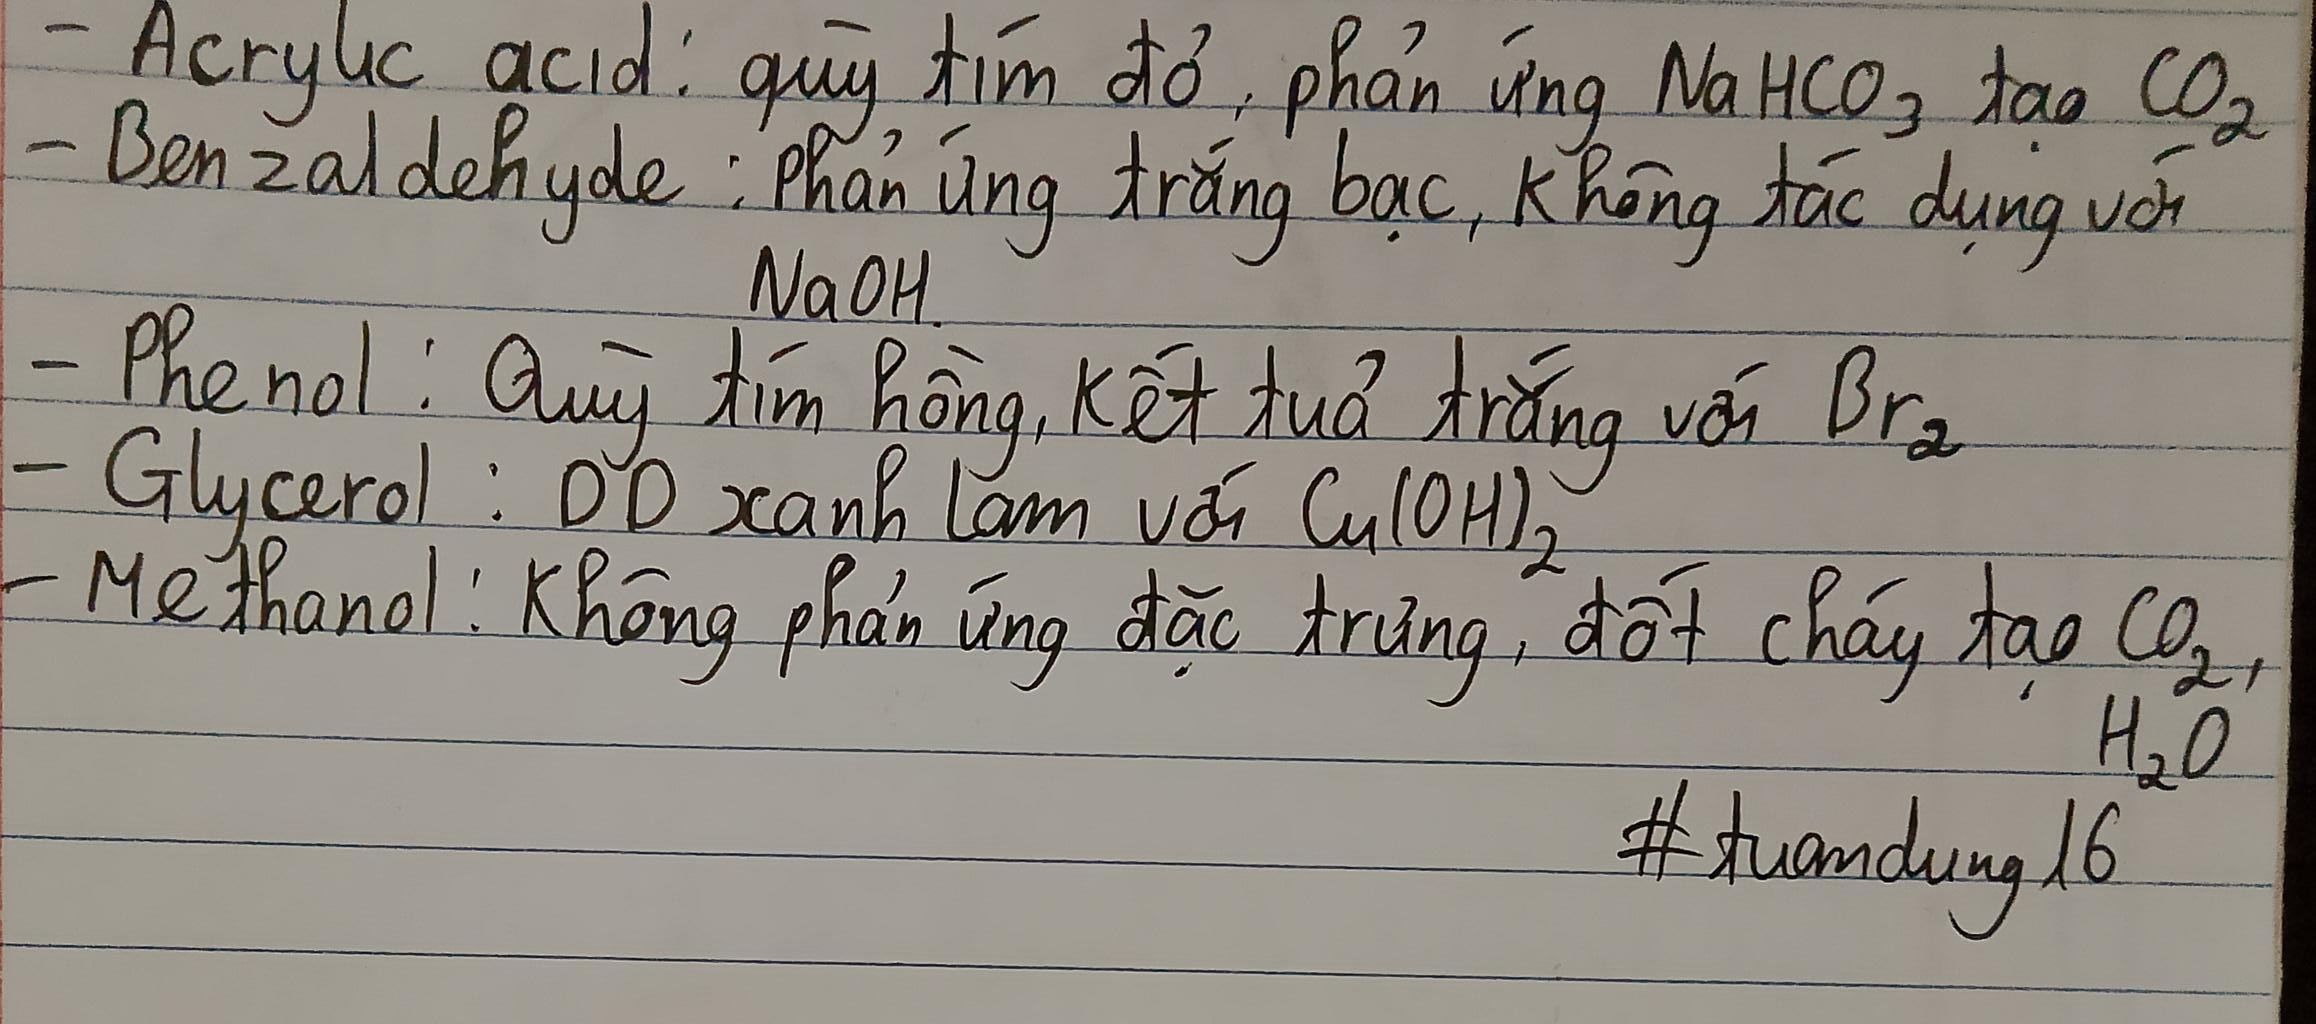 - Acrylic acid: quỳ tím đỏ, phản ứng NaHCO₃ tạo CO₂
- Benzaldehyde: Phản ứng trắng bạc, không tác dụng với
NaOH.
- Phenol: Quỳ tím hồng, kết tuả trắng với Br₂
- Glycerol: DD xanh lam với Cu(OH)₂
- Methanol: Không phản ứng đặc trưng, đốt cháy tạo CO₂,
H₂O
#tuandung16